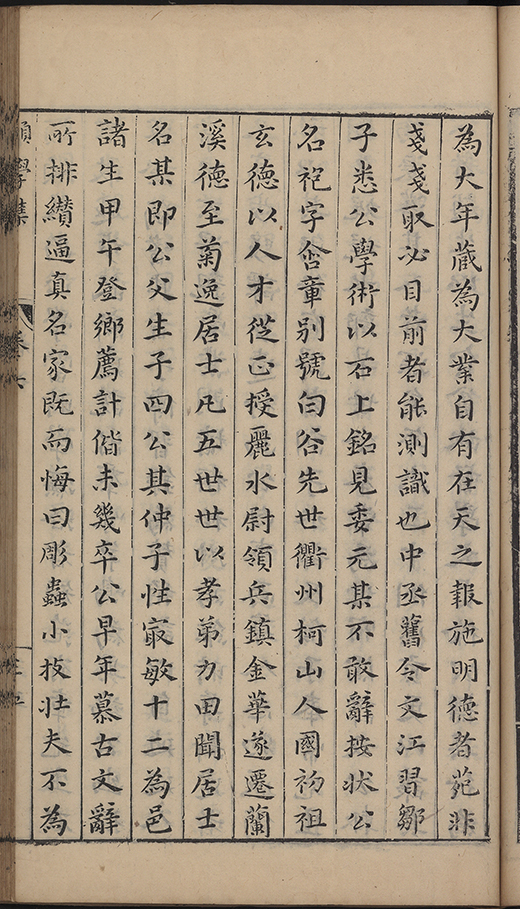 為大年蔵為大業自有在天之報施明德者菀非
戔戔取必目前者能測識也中丞舊令文江習鄒
子悉公學術以石上銘見委元某不敢辭按状公
名袍字含章别號曰谷先世衢州柯山人國初祖
玄德以人才從正授麗水尉領兵鎮金華遂遷蘭
溪德至菊逸居士凡五世世以孝弟力田聞居士
名某即公父生子四公其仲子性㝡敏十二為邑
諸生甲午登鄉薦計偕未幾卒公早年慕古文辭
所排纘逼真名家既而悔曰彫蟲小技壮夫不為
願學集
卷六